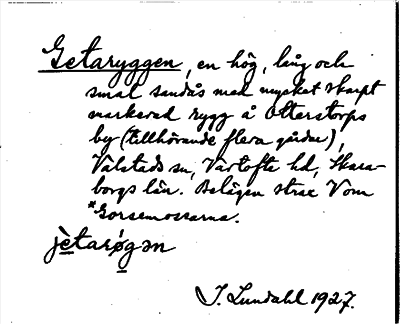 Getaryggen, en hög, lång och
smal sandås med mycket skarpt
markerad rygg å Otterstorps
by (tillhörande flera gårdar),
Valstads sn, Vartofta hd, Skara-
borgs län. Belägen strax V om
*Gorsemossarna.
jètarøgən
I. Lundahl 1927.